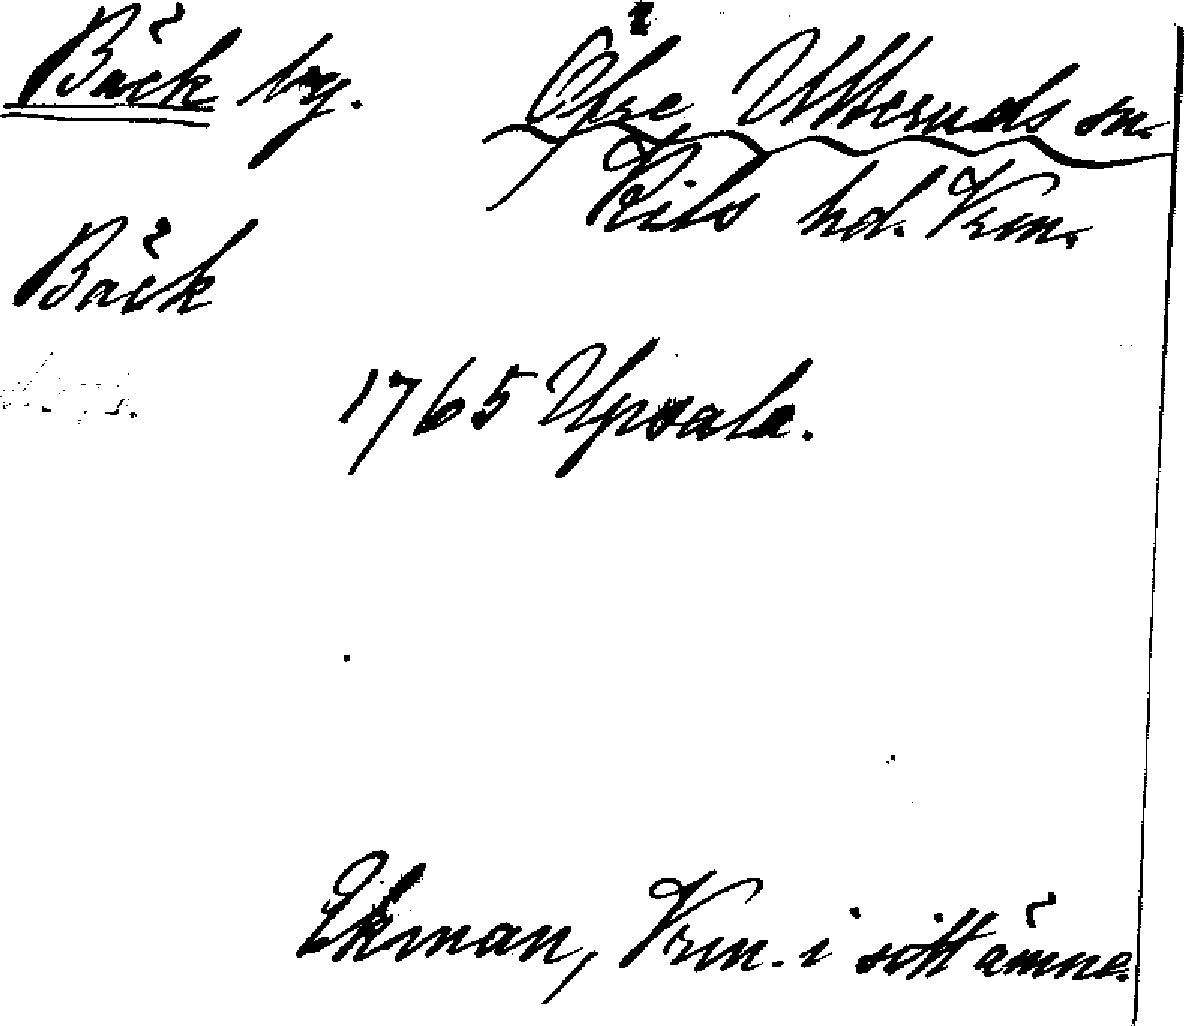 Bäck by. Öfre Ulleruds sn.
Kils hd. Vrm.
Bäck
1765 Upsala.
Ekman, Vrm. i sitt ämne.